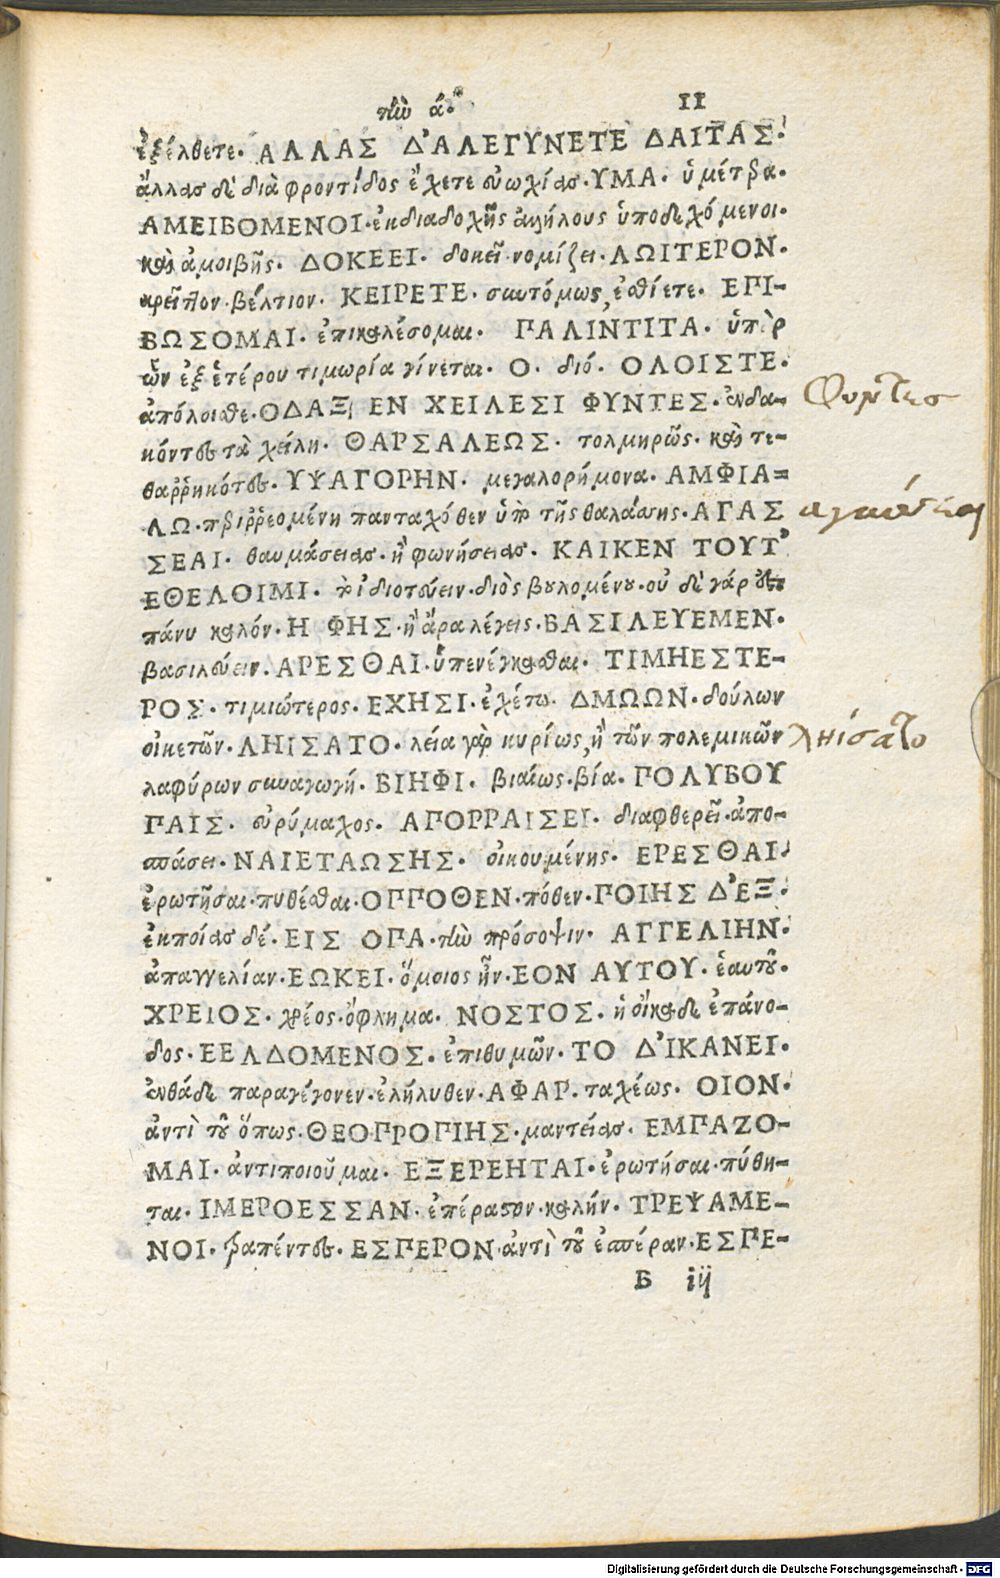 τὴν ά. 11
ἐξέλθετε. ΑΛΛΑΣ Δ'ΑΛΕΓΥΝΕΤΕ ΔΑΙΤΑΣ.
ἄλλας δὲ διὰ φροντίδος ἔχετε εὐωχίας. ΥΜΑ. ὑμέτερα.
ΑΜΕΙΒΟΜΕΝΟΙ. ἐκ διαδοχῆς ἀλλήλους ὑποδεχόμενοι.
καὶ ἀμοιβῆς. ΔΟΚΕΕΙ. δοκεῖ. νομίζει. ΛΩΙΤΕΡΟΝ.
κρεῖττον. βέλτιον. ΚΕΙΡΕΤΕ. συντόμως ἐσθίετε. ΕΠΙ-
ΒΩΣΟΜΑΙ. ἐπικαλέσομαι. ΠΑΛΙΝΤΙΤΑ. ὑπὲρ
ὧν ἐξ ἑτέρου τιμωρία γίνεται. Ο. διό. ΟΛΟΙΣΤΕ.
ἀπόλοισθε. ΟΔΑΞ ΕΝ ΧΕΙΛΕΣΙ ΦΥΝΤΕΣ. ἐνδα- Φυντες
κόντες τὰ χείλη. ΘΑΡΣΑΛΕΩΣ. τολμηρῶς. καὶ τε-
θαῤῥηκότως. ΥΨΑΓΟΡΗΝ. μεγαλορήμονα. ΑΜΦΙΑ=
ΛΩ. περιῤῥεομένη πανταχόθεν ὑπὸ τῆς θαλάσσης. ΑΓΑΣ
ΣΕΑΙ. θαυμάσειας. ἢ φωνήσειας. ΚΑΙΚΕΝ ΤΟΥΤ'
ΕΘΕΛΟΙΜΙ. τὸ ἰδιοτεύειν. διὸς βουλομένου. οὐ δὲ γάρ
πάνυ καλόν. Η ΦΗΣ. ἢ ἄρα λέγεις. ΒΑΣΙΛΕΥΕΜΕΝ.
βασιλεύειν. ΑΡΕΣΘΑΙ. ὑπενέγκασθαι. ΤΙΜΗΕΣΤΕ-
ΡΟΣ. τιμιώτερος. ΕΧΗΣΙ. ἐχέτω. ΔΜΩΩΝ. δούλων
οἰκετῶν. ΛΗΙΣΑΤΟ. λεία γὰρ κυρίως, ἡ τῶν πολεμικῶν ληίσατο
λαφύρων συναγωγή. ΒΙΗΦΙ. βιαίως. βία. ΠΟΛΥΒΟΥ
ΠΑΙΣ. εὐρύμαχος. ΑΠΟΡΡΑΙΣΕΙ. διαφθερεῖ. ἀπο-
σπάσει. ΝΑΙΕΤΑΩΣΗΣ. οἰκουμένης. ΕΡΕΣΘΑΙ.
ἐρωτῆσαι. πυθέσθαι. ΟΠΠΟΘΕΝ. πόθεν. ΠΟΙΗΣ Δ'ΕΞ.
ἐκ ποίας δέ. ΕΙΣ ΟΠΑ. τὴν πρόσοψιν. ΑΓΓΕΛΙΗΝ.
ἀπαγγελίαν. ΕΩΚΕΙ. ὅμοιος ἦν. ΕΟΝ ΑΥΤΟΥ. ἑαυτοῦ.
ΧΡΕΙΟΣ. χρέος. ὄφλημα. ΝΟΣΤΟΣ. ἡ οἴκαδε ἐπάνο-
δος. ΕΕΛΔΟΜΕΝΟΣ. ἐπιθυμῶν. ΤΟ Δ'ΙΚΑΝΕΙ.
ἐνθάδε παραγέγονεν. ἐλήλυθεν. ΑΦΑΡ. ταχέως. ΟΙΟΝ.
ἀντὶ τοῦ ὅπως. ΘΕΟΠΡΟΠΙΗΣ. μαντείας. ΕΜΠΑΖΟ-
ΜΑΙ. ἀντιποιοῦμαι. ΕΞΕΡΕΗΤΑΙ. ἐρωτήσαι. πύθη-
ται. ΙΜΕΡΟΕΣΣΑΝ. ἐπέραστον. καλήν. ΤΡΕΨΑΜΕ-
ΝΟΙ. τραπέντες. ΕΣΠΕΡΟΝ. ἀντὶ τοῦ ἑσπέραν. ΕΣΠΕ-
Β iij
Digitalisierung gefördert durch die Deutsche Forschungsgemeinschaft - DFG